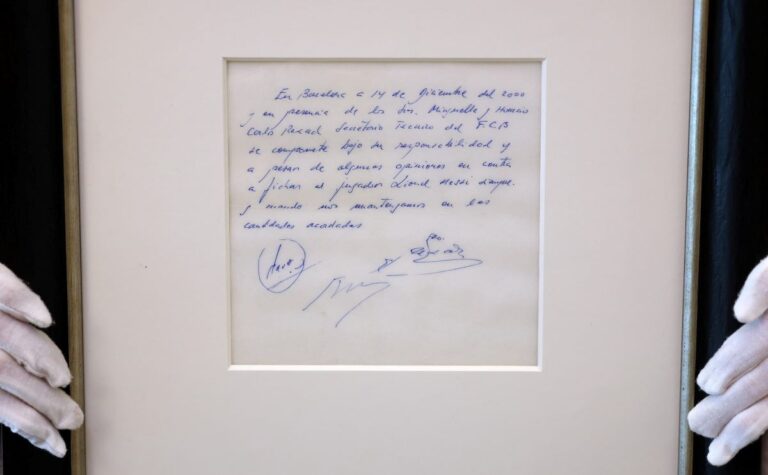 En Barcelona a 14 de Diciembre del 2000
y en presencia de los Srs. Minguella y Horacio
Carlos Rexach Secretario Tecnico del F.C.B
se compromete bajo su responsabilidad y
a pesar de algunas opiniones en contra
a fichar al jugador Lionel Messi
y cuando nos mantengamos en las
cantidades acordadas